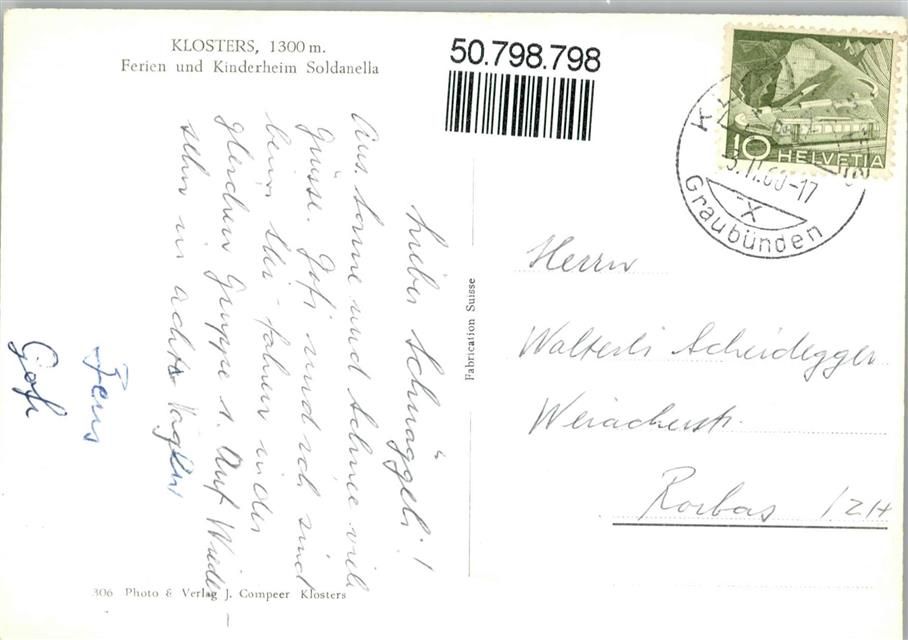 KLOSTERS, 1300 m.
Ferien und Kinderheim Soldanella
50.798.798
10 HELVETIA
-17
Graubünden
Lieber Schnäggeli!
Aus Sonne und Schnee viele
Grüsse. Göfi und ich sind
beim Ski-fahren in der
gleichen Gruppe 1. Auf Wieder
sehn in acht Tagen
Göfi
Fabrication Suisse
Herrn
Walterli Scheidegger
Weiacherstr.
Rorbas / ZH
306 Photo & Verlag J. Compeer Klosters